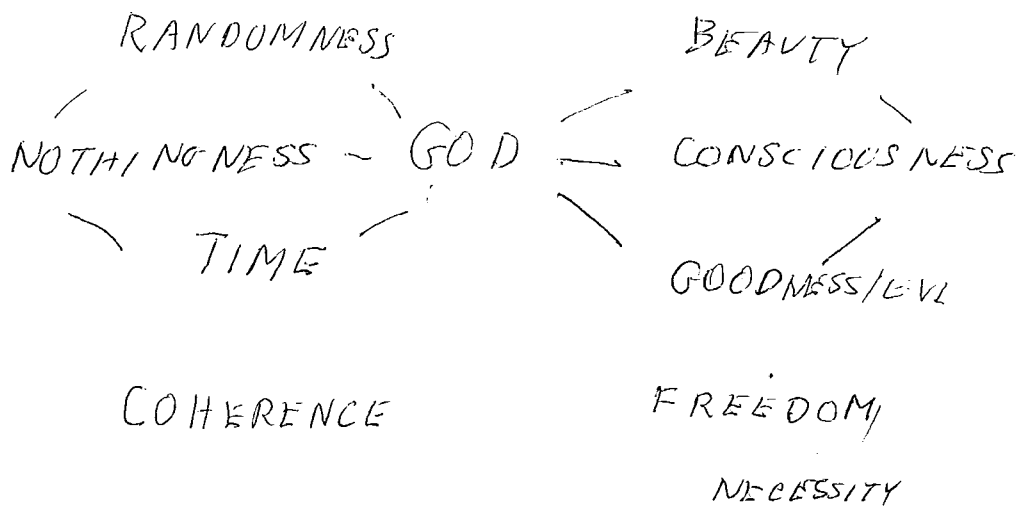 RANDOMNESS BEAUTY
NOTHINGNESS - GOD CONSCIOUSNESS
TIME GOODNESS/EVL
COHERENCE FREEDOM/
NECESSITY